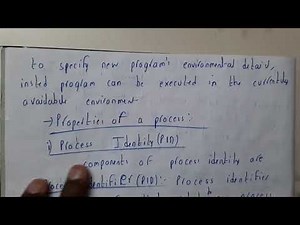 to specify new program's environmental details,
insted program can be executed in the currently
available environment.
→ Properties of a process:
i) Process Identity (PID)
components of process identity are
(PID):- Process identifier
process